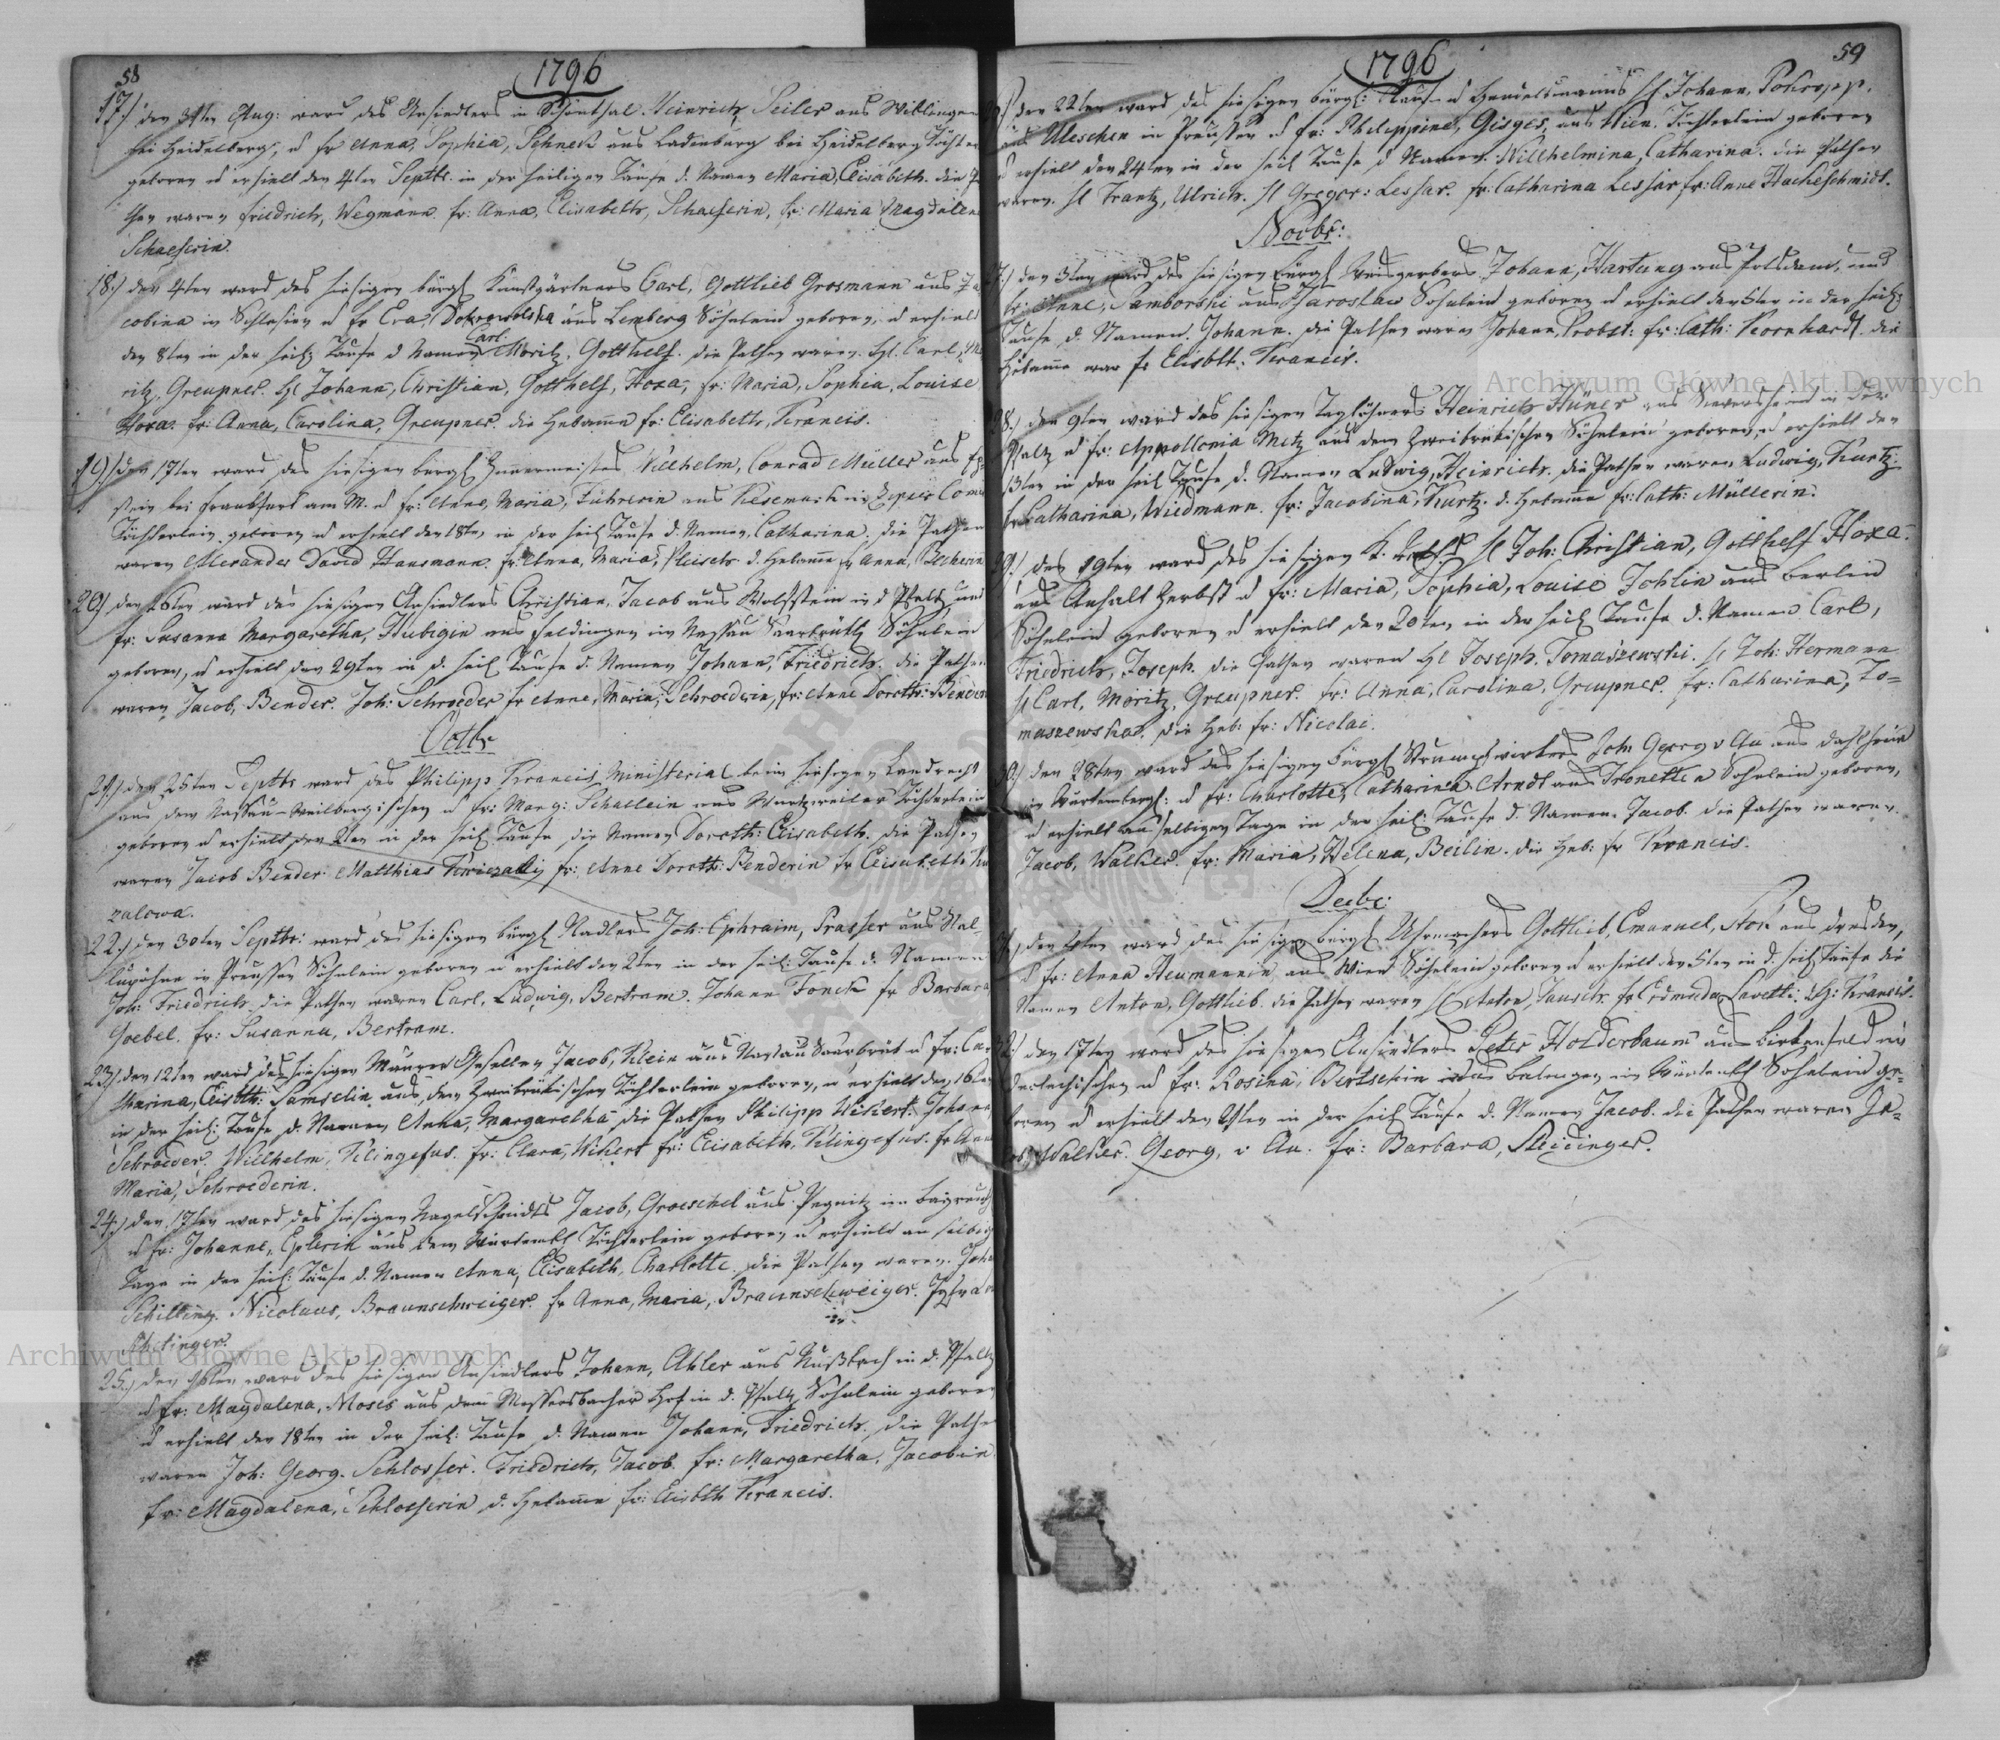 58
1796
17.) den 31ten Aug: ward des Ansiedlers in Schönthal. Heinrich, Seiler aus Wiblingen
bei Heidelberg, u fr Anna, Sophia, Schneck aus Ladenburg bei Heidelberg
geboren u erhielt den 4ten Septbr. in der heiligen Taufe d. Namen Maria, Elisabeth. die
waren Friedrich, Wegmann. fr: Anna, Elisabeth, Schaeferin, fr: Maria Magdalena
Schaeferin.
18.) den 4ten ward des hiesigen bürgl Kunstgärtners Carl, Gottlieb Grosmann aus
cobina in Schlesien u fr Eva, Dobrowolska aus Lemberg Söhnlein geboren, u erhielt
Carl
den 8ten in der heil: Taufe d Namen Moritz, Gotthelf. die Pathen waren. Hl. Carl,
ritz, Greupner. Hl Johann, Christian, Gotthelf, Hoxa, fr: Maria, Sophia, Louise
Hoxa. fr: Anna, Carolina, Greupner. die Hebamme fr: Elisabeth, Krancis.
19.) den 17ten ward des hiesigen bürgl Wilhelm, Conrad Müller aus
stein bei Frankfurt am M. u fr: Anne, Maria, Führerin aus Kesemark in
Töchterlein geboren u erhielt den 18ten in der heil Taufe d. Namen, Catharina. die Pathen
waren Alexander David Hausmann. fr: Anna, Maria, d. Hebamme fr Anna,
20.) den 26ten ward des hiesigen Ansiedlers Christian, Jacob aus Wolfstein in d Pfaltz, und
fr: Susanna Margaretha, Hubigin aus in Nassau Saarbrück Söhnlein
geboren, u erhielt den 29ten in d. heil Taufe d. Namen Johann, Friedrich. die Pathen
waren Jacob, Bender. Joh: Schroeder fr Anne, Maria, Schroederin, fr: Anne Doroth:
Octbr
21.) den 25ten Septbr ward des Philipp Krancis, Ministerial beim hiesigen Landrecht
aus dem Nassau-Weilbergischen u fr: Marg: Schallein aus Töchterlein
geboren u erhielt den 2ten in der heil Taufe die Namen Doroth: Elisabeth. die Pathen
waren Jacob Bender Matthias fr: Anne Doroth: Benderin fr Elisabeth
zalowa.
22.) den 30ten Septbr: ward des hiesigen bürgl Nadlers Joh: Ephraim, Prasser aus
in Preussen Söhnlein geboren u erhielt den 2ten in der heil: Taufe d. Namen
Joh: Friedrich. die Pathen waren Carl, Ludwig, Bertram. Johann Fonck fr Barbara
Goebel. fr: Susanna, Bertram.
23.) den 12ten ward des hiesigen Maurer Gesellen Jacob, Klein aus Nassau Saarbrük u fr:
tharina, Elisbth: Samselin aus dem Zweibrükischen Töchterlein geboren, u erhielt den 16ten
in der heil: Taufe d. Namen Anna, Margaretha die Pathen Philipp Wikert.
Schroeder. Wilhelm, Klingefus. fr: Clara, Wikert fr: Elisabeth, Klingefus. fr
Maria, Schroederin.
24.) den 17ten ward des hiesigen Nagelschmidts Jacob, Groeschel aus Pegnitz im
u fr: Johanne, Eplerin aus dem Würtembl Töchterlein geboren u erhielt an selbigem
Tage in der heil: Taufe d. Namen Anna, Elisabeth, Charlotte. die Pathen waren.
Schilling. Nicolaus, Braunschweiger. fr Anna, Maria, Braunschweiger.
25.) den 16ten ward des hiesigen Ansiedlers Johann, Ahler aus Nußbach in d. Pfaltz
u fr: Magdalena, Moses aus dem Messersbacher Hof in d. Pfaltz Söhnlein geboren
u erhielt den 18ten in der heil: Taufe d. Namen Johann, Friedrich. die Pathen
waren Joh: Georg. Schlosser. Friedrich, Jacob. fr: Margaretha, Jacobin
fr: Magdalena, Schlosserin d. Hebamme fr: Elisbth Krancis.
59
1796
den 22ten ward des hiesigen bürgl: u Handelsmanns Hl Johann, Pokropp.
aus in Preussen u fr: Philippine, Gisges, aus Wien. Töchterlein geboren
u erhielt den 24ten in der heil Taufe d Namen. Willhelmina, Catharina. die Pathen
waren. Hl Frantz, Ulrich. Hl Gregor: Lessar. fr: Catharina Lessar fr: Anne Hackeschmidt.
Novbr:
27.) den 3ten ward des hiesigen bürgl Weisgerbers Johann, Hartung aus Potsdam, und
fr: Anne, Samborski aus Jaroslaw Söhnlein geboren u erhielt den 5ten in der heil:
Taufe d. Namen. Johann. die Pathen waren Johann, Probst: fr: Cath: Kornhardt. die
Hebamme war fr Elisbth: Krancis.
28.) den 9ten ward des hiesigen Taglöhners Heinrich Hüner aus in der
Pfaltz u fr: Appollonia Metz aus dem Zweibrükischen Söhnlein geboren, u erhielt den
13ten in der heil Taufe d. Namen Ludwig, Heinrich. die Pathen waren Ludwig, Kurtz.
fr: Catharina, Wiedmann. fr: Jacobina, Kurtz. d. Hebamme fr: Cath: Müllerin.
29.) den 19ten ward des hiesigen K. Hl Joh: Christian, Gotthelf Hoxa.
aus Anhalt Zerbst u fr: Maria, Sophia, Louise Johlin aus Berlin
Söhnlein geboren u erhielt den 20ten in der heil Taufe d. Namen Carl,
Friedrich, Joseph. die Pathen waren Hl Joseph. Tomaszewski. Hl Joh: Hermann
Hl Carl, Moritz, Greupner. fr: Anna, Carolina, Greupner. fr: Catharina, To=
maszewska. die Heb: fr: Nicolai.
30.) den 28ten ward des hiesigen bürgl Strumpfwirkers Joh: Georg v Au aus
in Würtembergl: u fr: Charlotte, Catharina Arndt aus Söhnlein geboren,
u erhielt an selbigem Tage in der heil: Taufe d. Namen. Jacob. die Pathen waren.
Jacob, Walker. fr: Maria, Helena, Beilin. die Heb: fr Krancis.
Decbr:
den 4ten ward des hiesigen bürgl Uhrmachers Gottlieb, Emanuel, Stok aus Dresden,
u fr: Anna Heumannin aus Wien Söhnlein geboren u erhielt den 5ten in d. heil Taufe die
Namen Anton, Gottlieb. die Pathen waren Hl Anton, Jausch. fr Edmunda Cavetti. Krancis.
den 17ten ward des hiesigen Ansiedlers Peter Holderbaum aus Birkenfeld im
u fr: Rosina, Bertschin aus Balingen im Würtembl Söhnlein ge=
boren u erhielt den in der heil Taufe d. Namen Jacob. die Pathen waren Ja=
cob, Walker. Georg, v Au. fr: Barbara, Sleidinger.
Archiwum Główne Akt Dawnych
Archiwum Główne Akt Dawnych